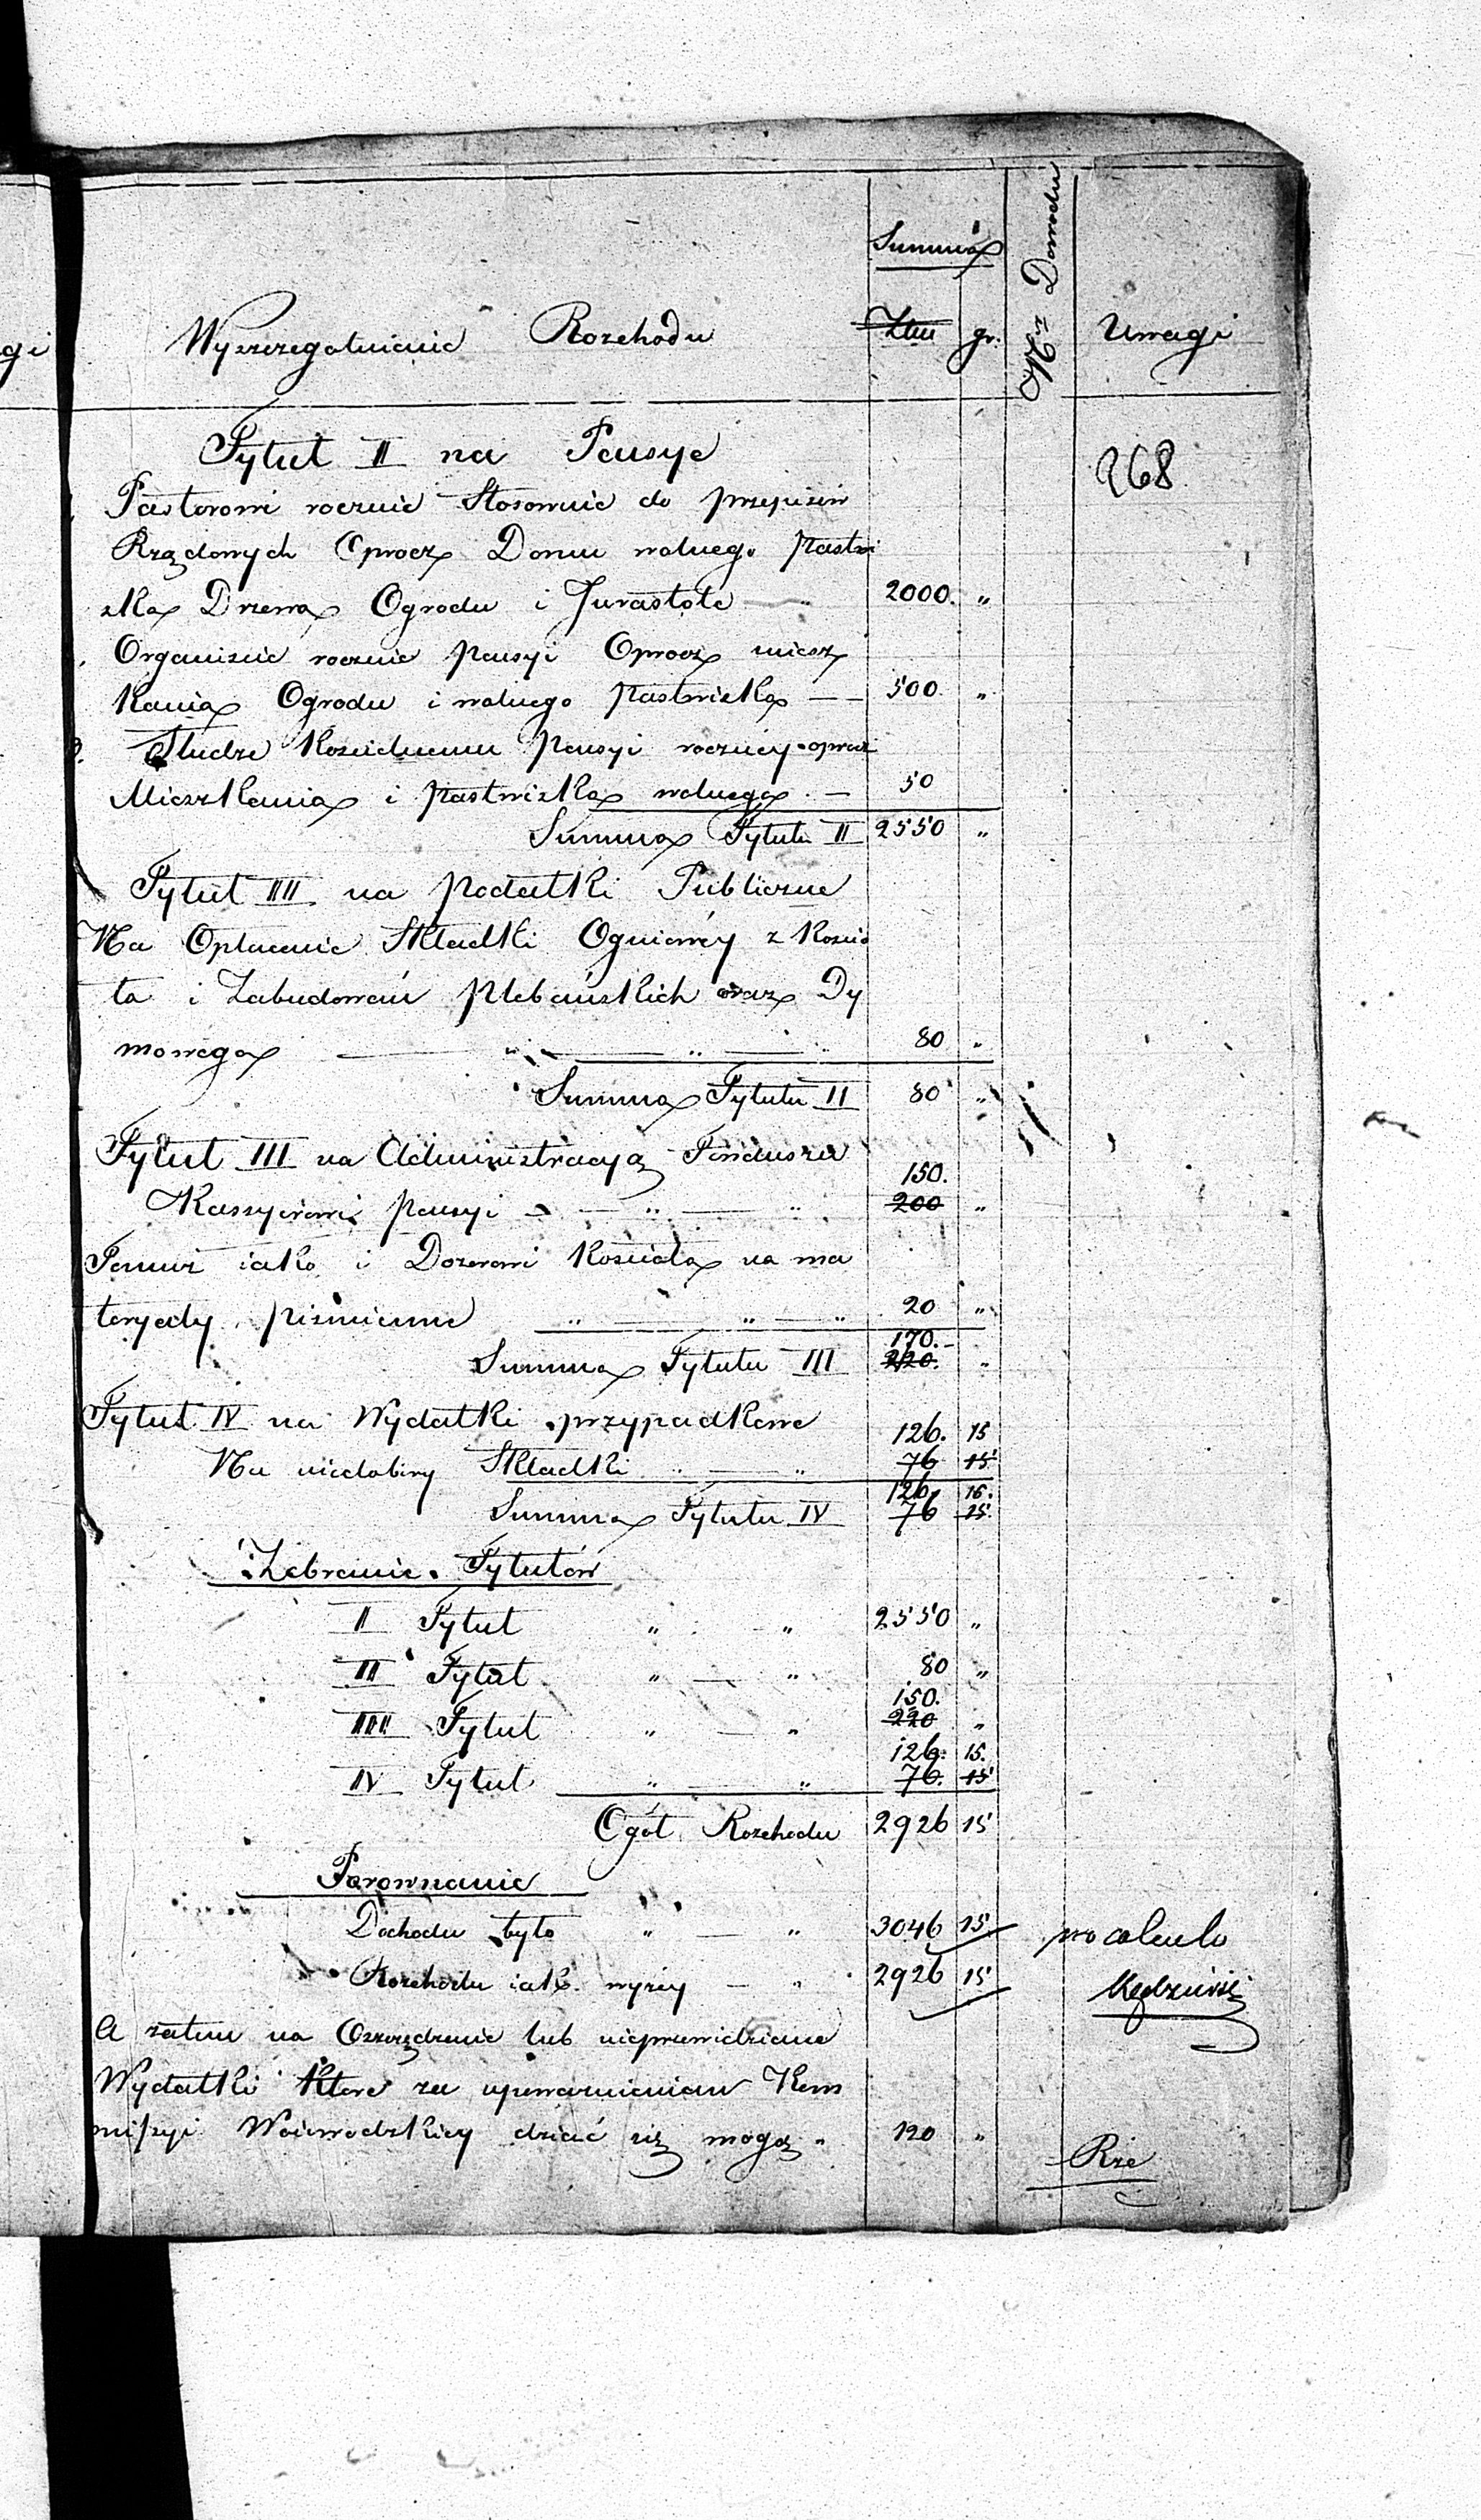 Summa
Wyszczegolnienie Rozchodu Złłu gr: Nr Dowodu Uwagi
Tytuł II na Pensye 268
Pastorowi rocznie Stosownie do przepisów
Rządowych Oprocz Domu wolnego Pastwi
ska Drzewa Ogrodu i Jurastole " 2000. "
Organiscie rocznie pensyi Oprocz miesz
kania Ogrodu i wolnego Pastwiska — — 500. "
Słudze Kościelnemu Pensyi roczney oprocz
Mieszkania i pastwiska wolnego. — 50
Summa Tytułu II 2550 "
Tytuł III na podatki Publiczne
Na Opłacenie Składki Ogniowéy z Kościo
ła i Zabudowań Plebańskich oraz Dy
mowego — " — " — " 80 "
Summa Tytułu II 80 "
Tytuł III na Administracyą Funduszu
150.
Kassyerowi pensyi — — " — " 200 "
Temuż iako i Dozorowi Kościoła na ma
teryały piśmienne " — " — " 20 "
170.-
Summa Tytułu III 220. "
Tytuł IV na Wydatki przypadkowe
126. 15
Na niedobory Składki " — " 76 15
126. 15.
Summa Tytułu IV 76 15.
Zebranie Tytułów
II Tytuł " " 2550 "
III Tytuł " — " 80 "
150.
IIII Tytuł " — " 220 "
126. 15.
IV Tytuł " — " 76. 15
Ogół Rozchodu 2926 15
Porownanie
Dochodu było " — " 3046 15 pro calculo
Rozchodu iak wyżey — " 2926 15
A zatem na Oszczędzenie lub nieprzewidziane
Wydatki które za upoważnieniem Kom
missyi Woiewodzkiey dziać się mogą " 120 "
Rze